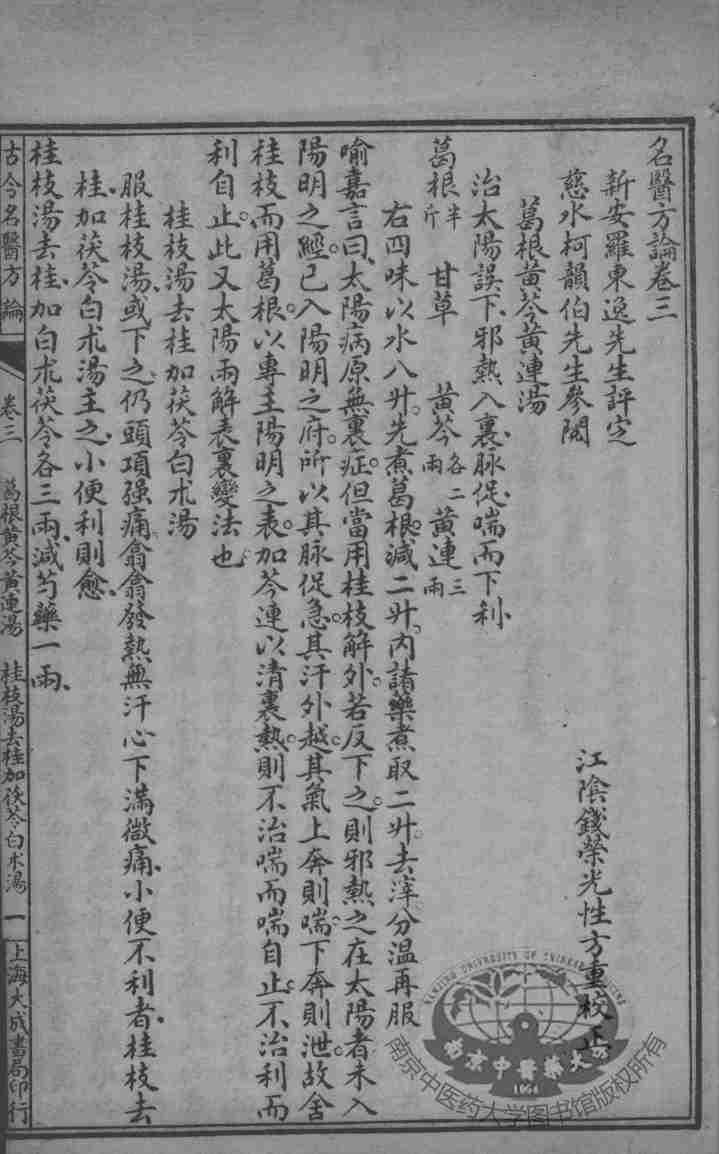 名醫方論卷三
新安羅東逸先生評定
慈水柯韻伯先生參閱
江陰錢榮光性方重校正
葛根黃芩黃連湯
治太陽誤下、邪熱入裏、脉促、喘而下利、
葛根半斤 甘草 黃芩各二兩 黃連三兩
右四味以水八升。先煮葛根。減二升。內諸藥煮取二升。去滓。分溫再服
喻嘉言曰、太陽病原無裏症。但當用桂枝解外。若反下之。則邪熱之在太陽者。未入
陽明之經。已入陽明之府。所以其脉促急。其汗外越。其氣上奔則喘。下奔則泄。故舍
桂枝而用葛根。以專主陽明之表。加芩連以清裏熱。則不治喘而喘自止。不治利而
利自止。此又太陽兩解表裏變法也。
桂枝湯去桂加茯苓白朮湯
服桂枝湯、或下之、仍頭項强痛、翕翕發熱、無汗、心下滿微痛、小便不利者、桂枝去
桂、加茯苓白朮湯主之、小便利則愈、
桂枝湯去桂、加白朮茯苓各三兩、減芍藥一兩、
古今名醫方論
卷三
葛根黃芩黃連湯 桂枝湯去桂加茯苓白朮湯
一
上海大成書局印行
NANJING UNIVERSITY OF CHINESE MEDICINE
南京中醫藥大學
1954
南京中医药大学图书馆版权所有